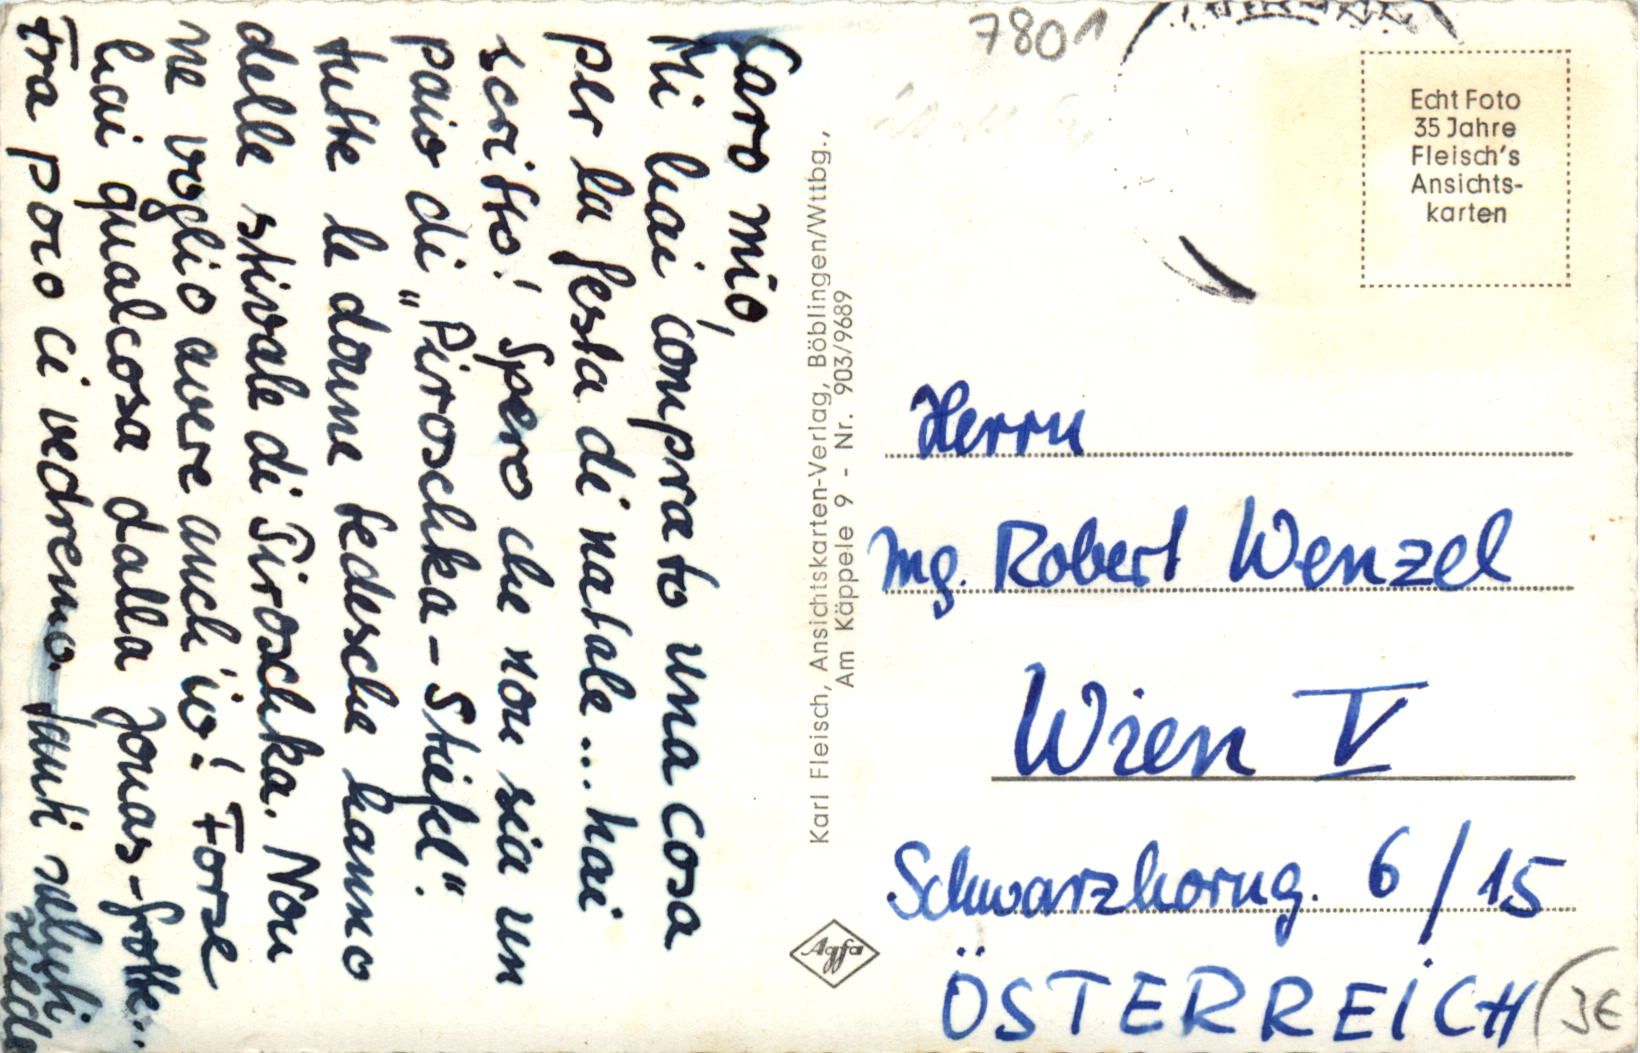 Caro mio,
Mi hai comprato una cosa
per la festa di natale... hai
scritto! Spero che non sia un
paio di „Piroschka-Stiefel".
tutte le donne tedesche hanno
delle stivale di Piroschka. Non
ne voglio avere anch'io! Forse
hai qualcosa dalla Jonas-
Fra poco ci vedremo. Tanti saluti
Karl Fleisch, Ansichtskarten-Verlag, Böblingen/Wttbg.,
Am Käppele 9 - Nr. 903/9689
Agfa
7801
Echt Foto
35 Jahre
Fleisch's
Ansichts-
karten
Herrn
Ing. Robert Wenzel
Wien V
Schwarzhorng. 6/15
ÖSTERREICH
3€